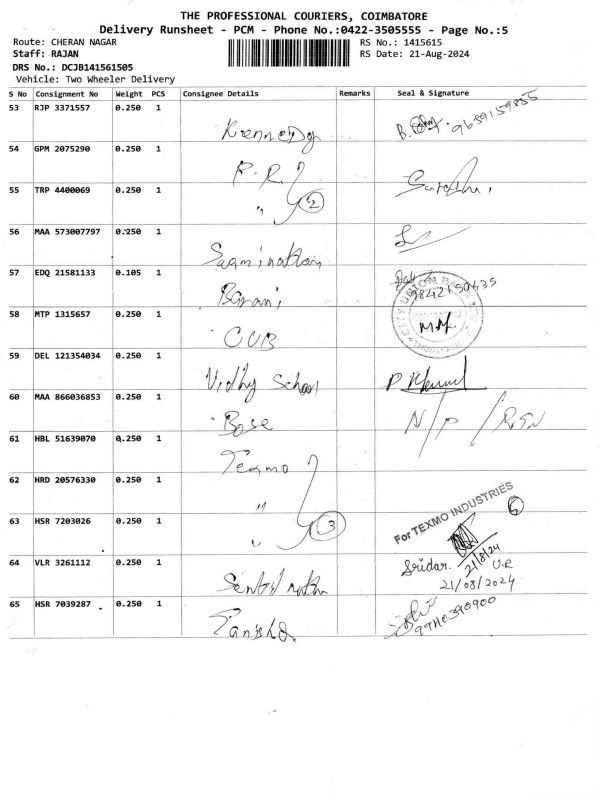 THE PROFESSIONAL COURIERS, COIMBATORE
Delivery Runsheet - PCM - Phone No.:0422-3505555 - Page No.:5
Route: CHERAN NAGAR RS No.: 1415615
Staff: RAJAN RS Date: 21-Aug-2024
DRS No.: DCJB141561505
Vehicle: Two Wheeler Delivery
S No Consignment No Weight PCS Consignee Details Remarks Seal & Signature
53 RJP 3371557 0.250 1
Kennedy 9659159855
54 GPM 2075290 0.250 1
P.R.
55 TRP 4400069 0.250 1
" 2
56 MAA 573007797 0.250 1
Saaminathan
57 EDQ 21581133 0.105 1
Barani
58 MTP 1315657 0.250 1
CUB
59 DEL 121354034 0.250 1
Vidhy School
60 MAA 866036853 0.250 1
Bose N/P/RTN
61 HBL 51639070 0.250 1
Texmo
62 HRD 20576330 0.250 1
"
63 HSR 7203026 0.250 1
" 3
For TEXMO INDUSTRIES 6
21/8/24
64 VLR 3261112 0.250 1
Sridar. U.R
Sentil nathan 21/08/2024
65 HSR 7039287 0.250 1
Tanisha